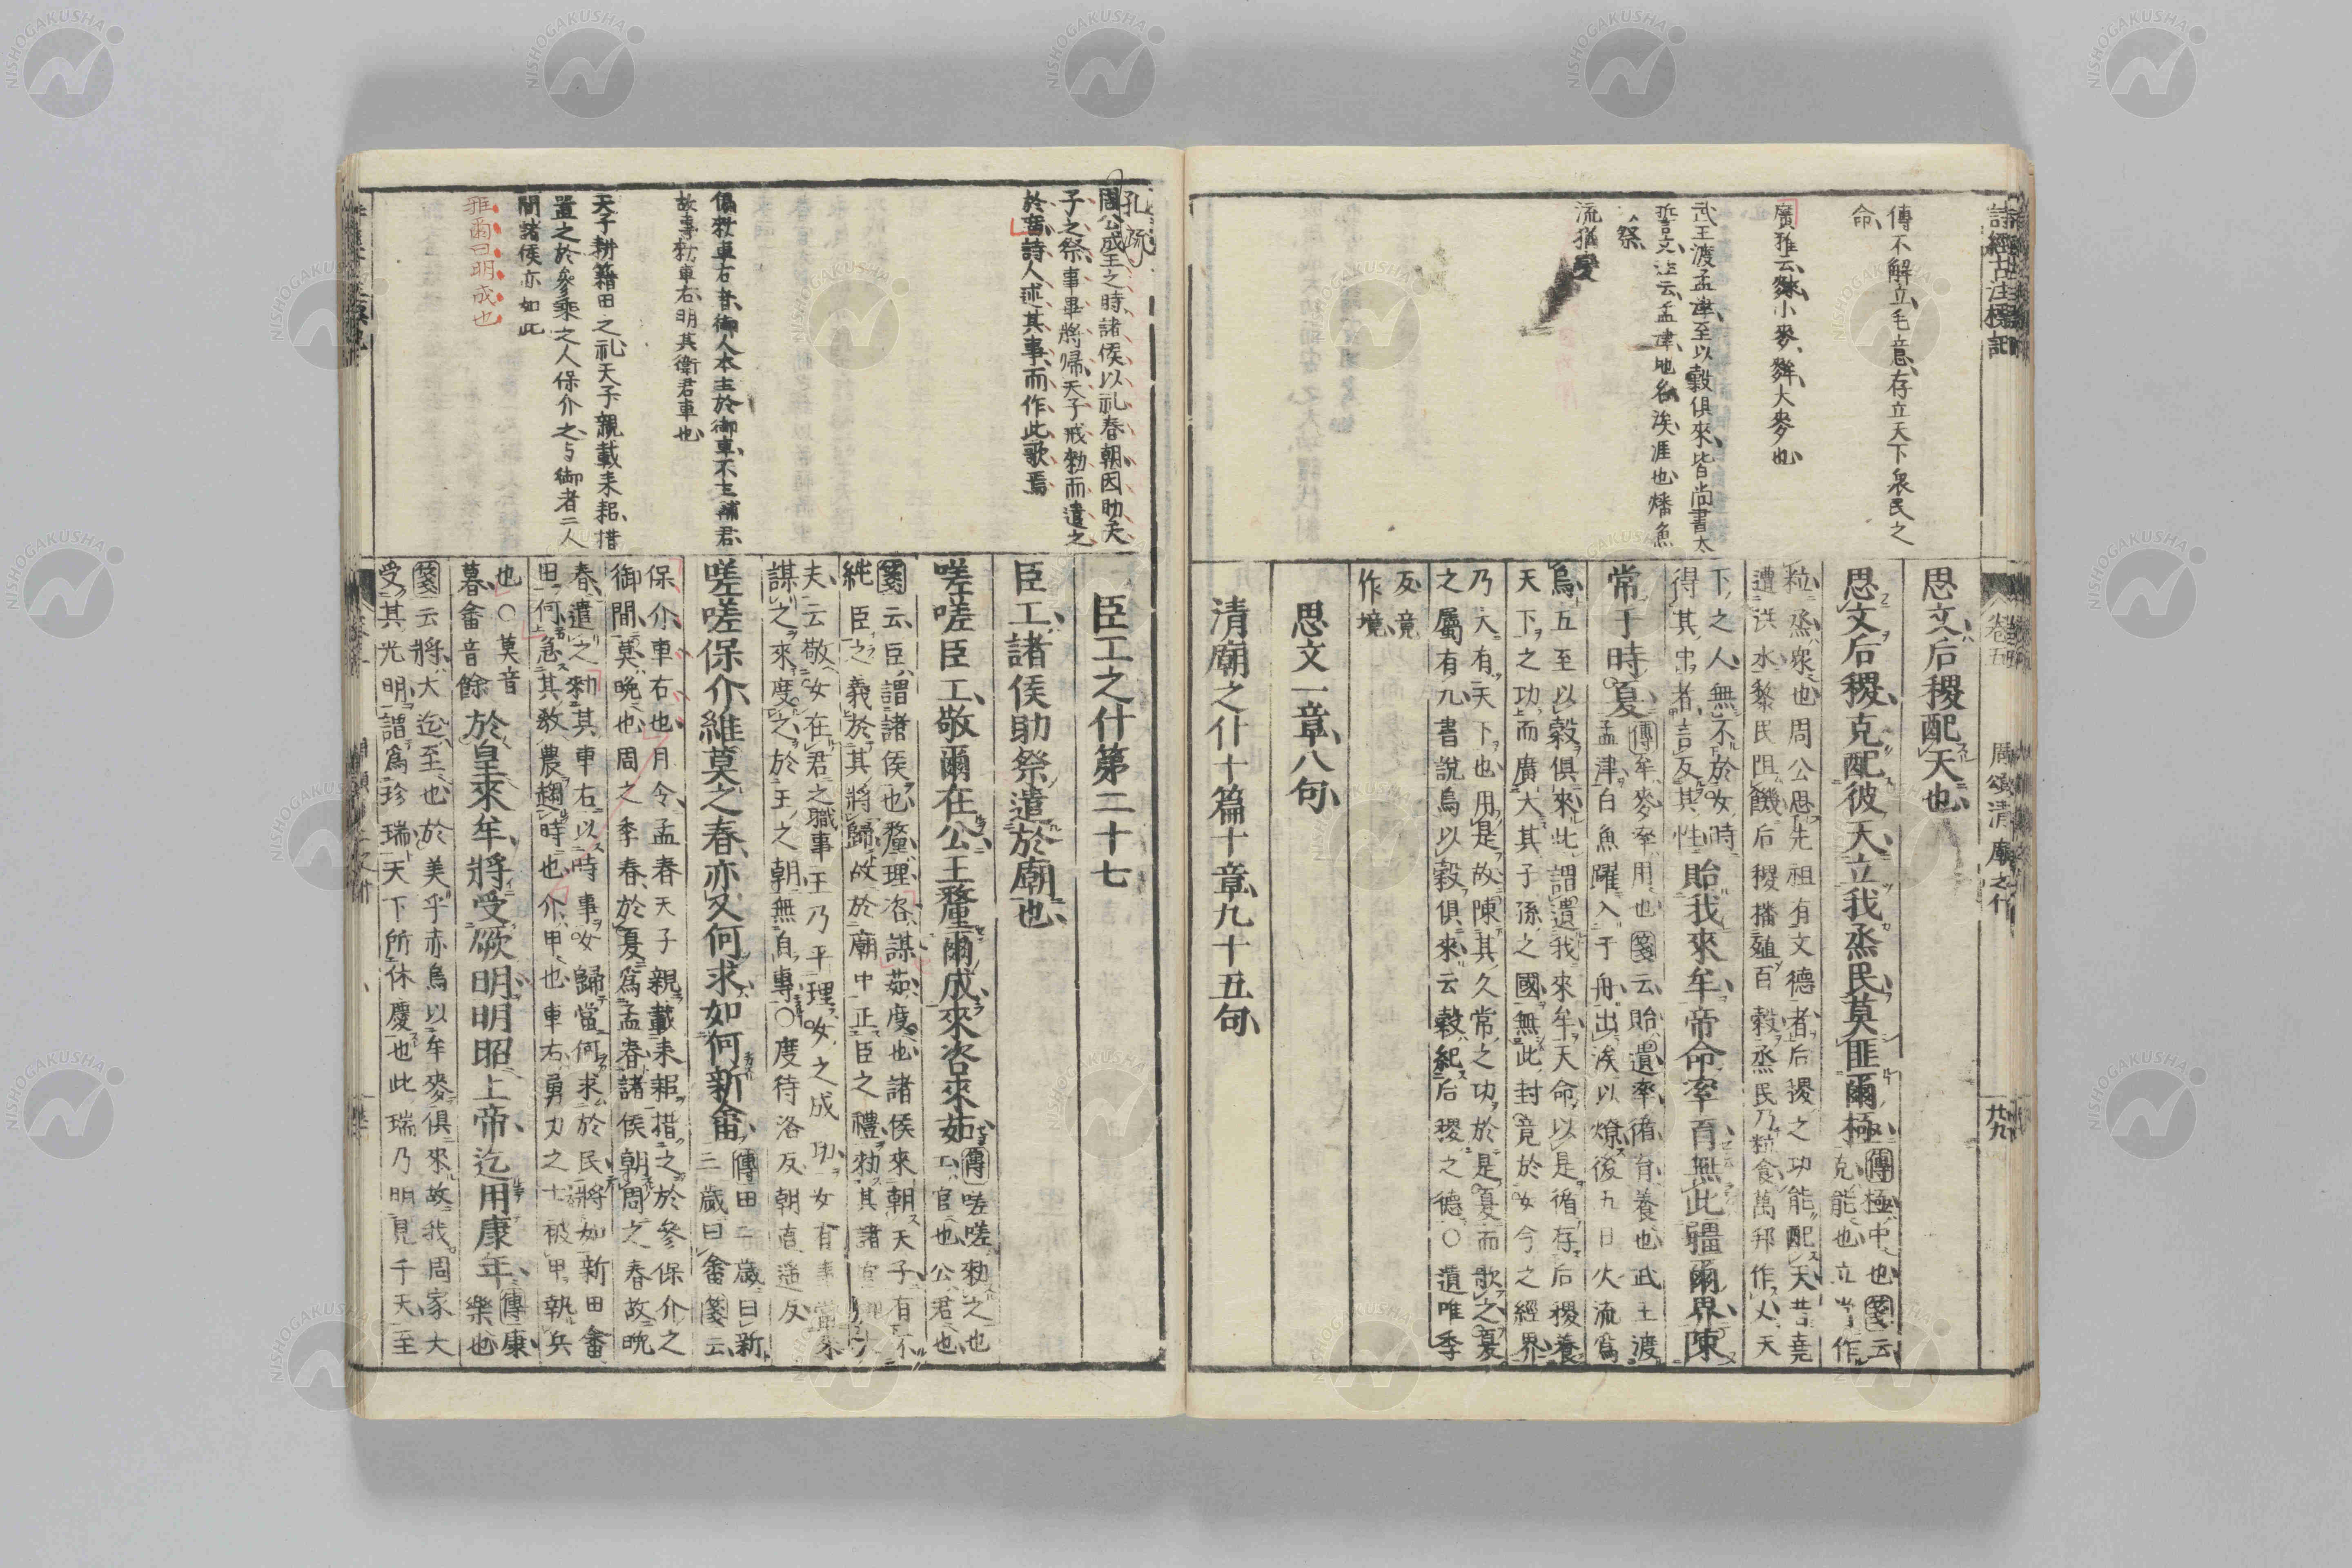 詩經古注標記
卷五　周頌清廟之什　廿九
傳不解立毛意存立天下衆民之
命
廣雅云䅘小麥麰大麥也
武王渡孟津至以穀俱來皆尚書太
誓文注云孟津地名涘涯也燔魚
祭
流猶變
思文后稷配天也
思文后稷克配彼天立我烝民莫匪爾極
傳極中也箋云
克能也立當作
粒烝衆也周公思先祖有文德者后稷之功能配天昔堯
遭洪水黎民阻飢后稷播殖百穀烝民乃粒食萬邦作乂天
下之人無不於女時
得其中者言反其性
貽我來牟帝命率育無此疆爾界陳
常于時夏
傳牟麥率用也箋云貽遺率循育養也武王渡
孟津白魚躍入于舟出涘以燎後五日火流爲
烏五至以穀俱來此謂遺我來牟天命以是循存后稷養
天下之功而廣大其子孫之國無此封竟於女今之經界
乃大有天下也用是故陳其久常之功於是夏而歌之夏
之屬有九書說烏以穀俱來云穀紀后稷之德○遺唯季
反竟
作境
思文一章八句
清廟之什十篇十章九十五句
孔疏
周公成王之時諸侯以礼春朝因助天
子之祭事畢將帰天子戒勑而遣之
於廟詩人述其事而作此歌焉
偏勑車右者御人本主於御車不主補君
故專勑車右明其衛君車也
天子耕籍田之礼天子親載耒耜措
置之於參乘之人保介之与御者二人
間諸侯亦如此
雅爾曰明成也
臣工之什第二十七
臣工諸侯助祭遣於廟也
嗟嗟臣工敬爾在公王釐爾成來咨來茹
傳嗟嗟勑之也
工官也公君也
箋云臣謂諸侯也釐理咨謀茹度也諸侯來朝天子有不
純臣之義於其將歸故於廟中正臣之禮勑其諸官卿大
夫云敬女在君之職事王乃平理女之成功女有事當來
謀之來度之於王之朝無自專○度待洛反朝直遥反
嗟嗟保介維莫之春亦又何求如何新畬
傳田二歲曰新
三歲曰畬箋云
保介車右也月令孟春天子親載耒耜措之於參保介之
御間莫晚也周之季春於夏爲孟春諸侯朝周之春故晚
春遣之勑其車右以時事女歸當何求於民將如新田畬
田何急其敎農趨時也介甲也車右勇力之士被甲執兵
也○莫音
暮畬音餘
於皇來牟將受厥明明昭上帝迄用康年
傳康
樂也
箋云將大迄至也於美乎赤烏以牟麥俱來故我周家大
受其光明謂爲珍瑞天下所休慶也此瑞乃明見于天至